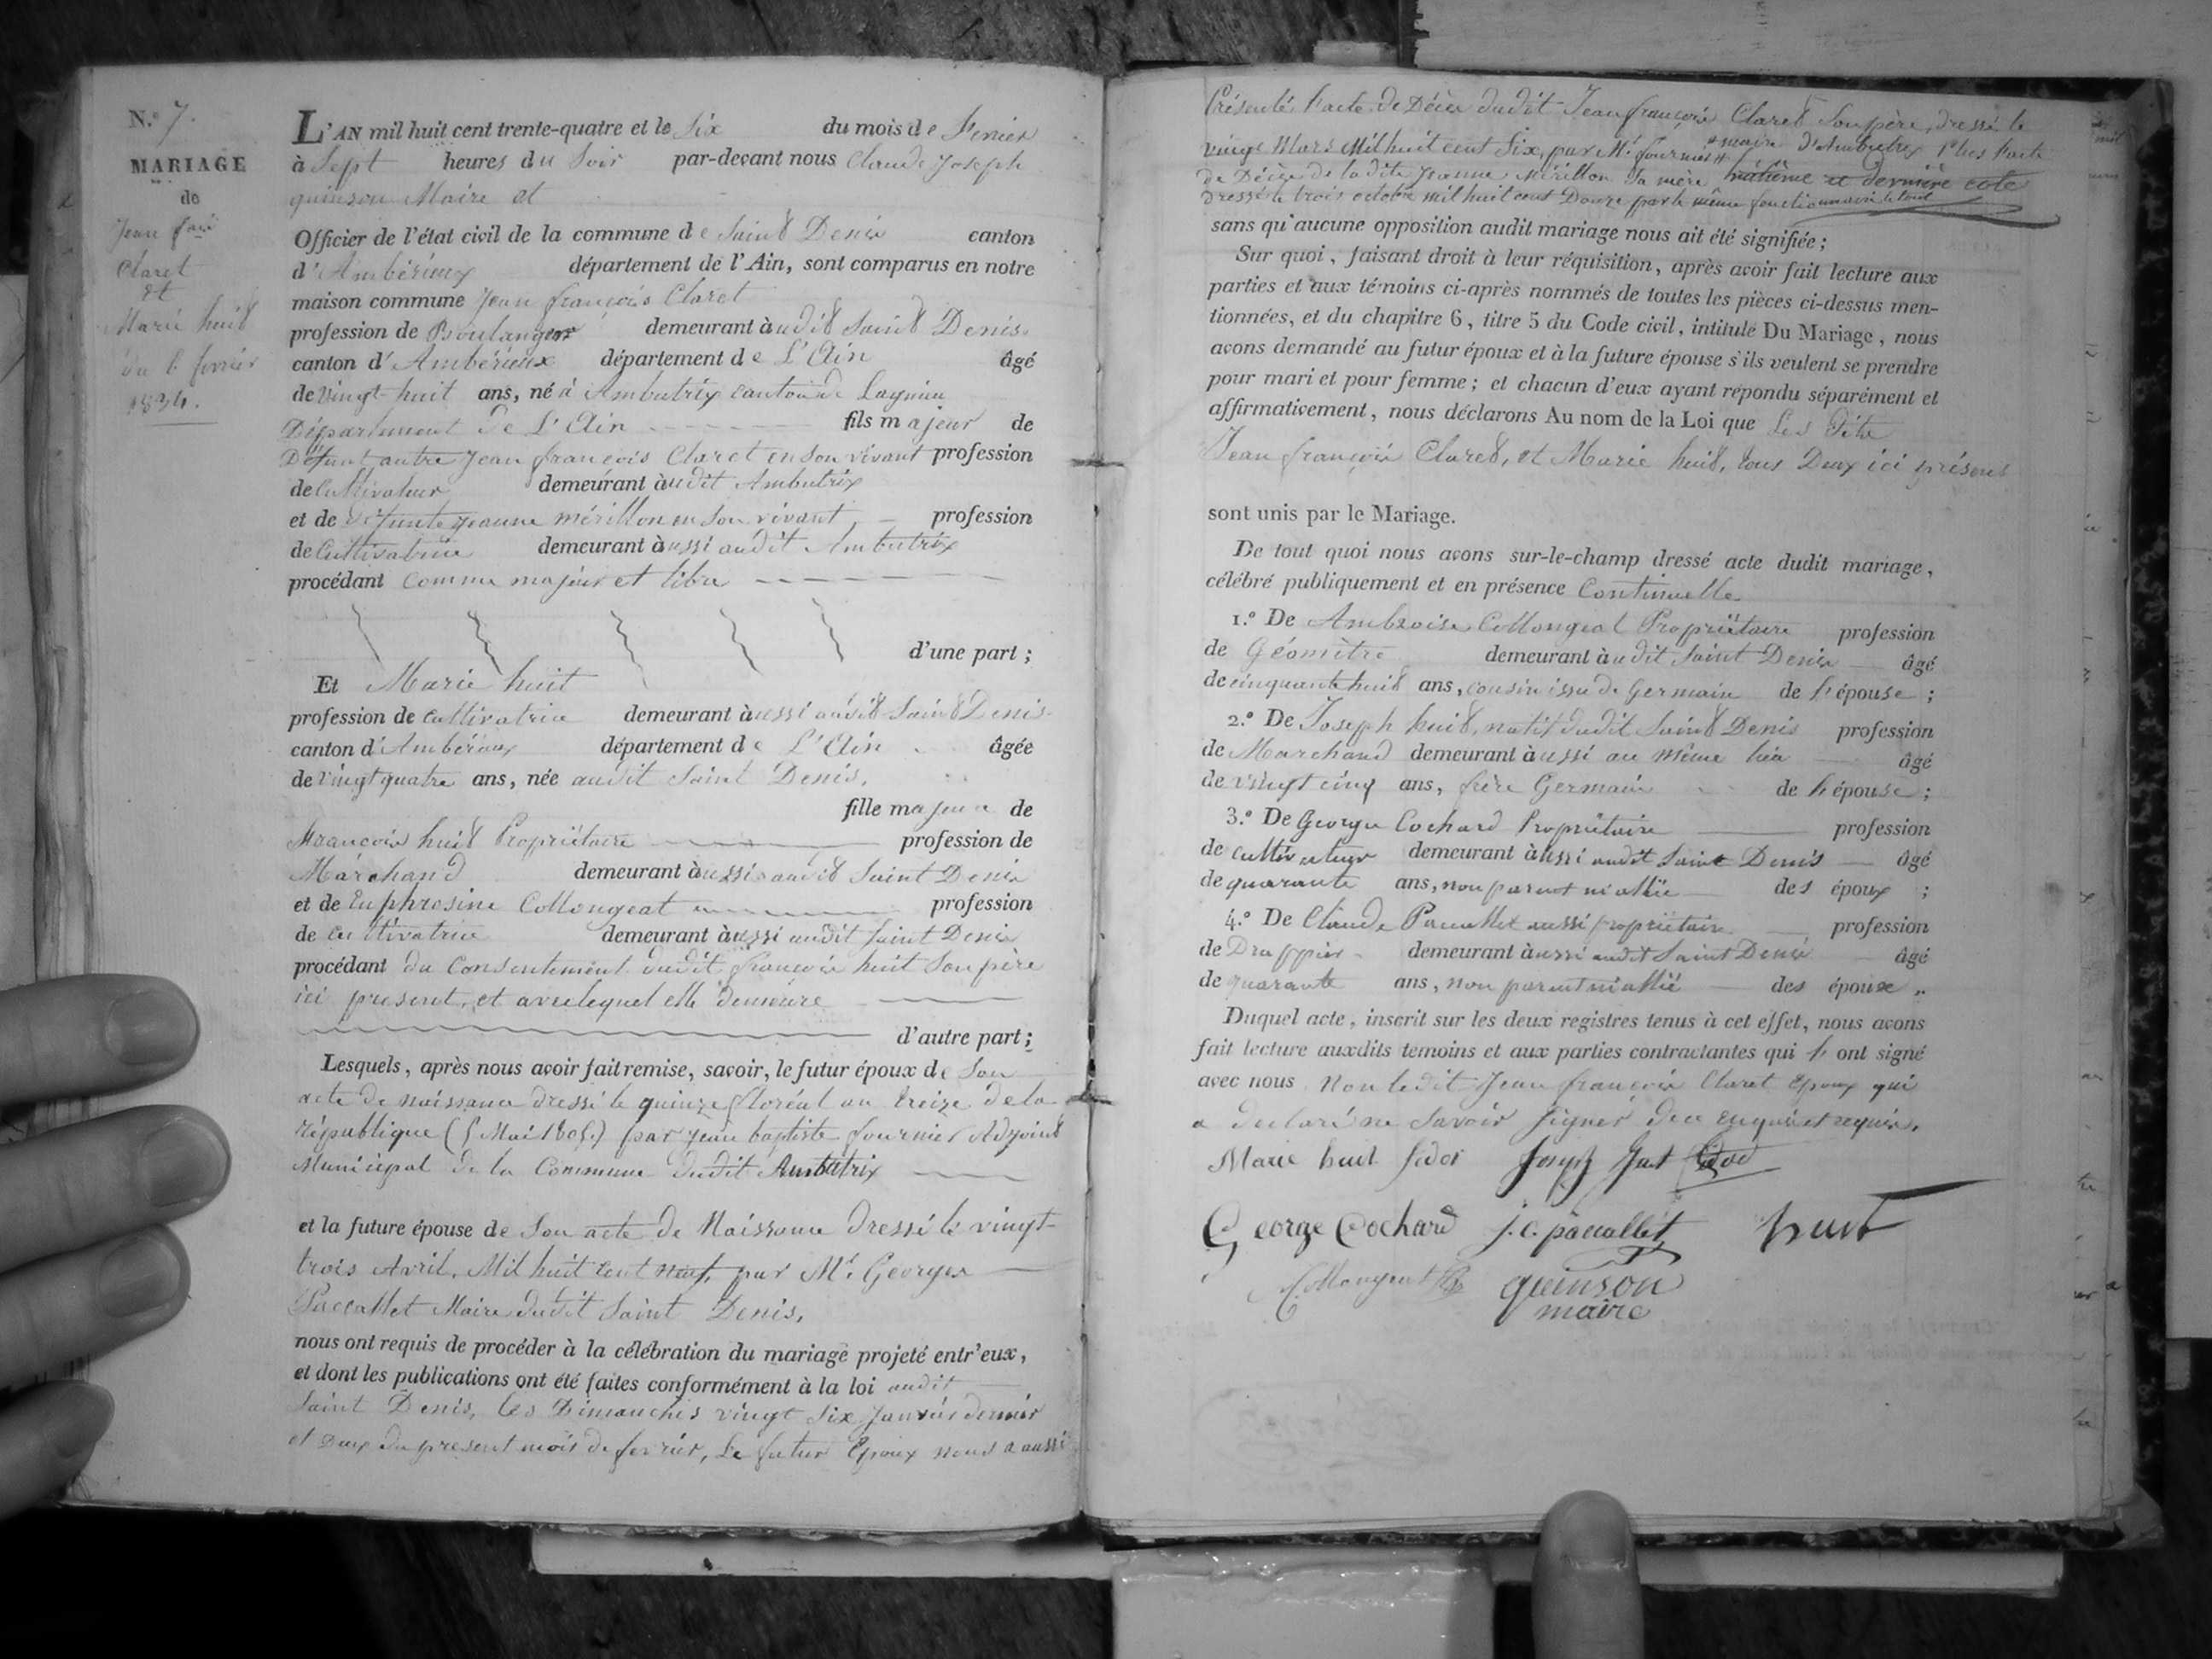 N.º 7.
MARIAGE
de
Jean fois
Claret
et
Marie huit
du 6 fevrier
1834.
L'AN mil huit cent trente-quatre et le Six du mois de Fevrier
à Sept heures du Soir par-devant nous Claude Joseph
quinson Maire et
Officier de l'état civil de la commune de Saint Denis canton
d'Ambérieux département de l'Ain, sont comparus en notre
maison commune Jean françois Claret
profession de Boulanger demeurant àudit Saint Denis
canton d'Ambérieux département de L'Ain âgé
de Vingt-huit ans, né à Ambutrix canton de Lagnieu
Département de L'Ain fils majeur de
Défunt autre Jean françois Claret en son vivant profession
de Cultivateur demeurant àudit Ambutrix
et de défunte jeanne mérillon en son vivant profession
de Cultivatrice demeurant àussi audit Ambutrix
procédant comme majeur et libre
d'une part ;
Et Marie huit
profession de cultivatrice demeurant àussi audit Saint Denis
canton d'Ambérieux département de L'Ain âgée
de vingt quatre ans, née audit Saint Denis,
fille majeure de
françois huit Propriétaire profession de
Marchand demeurant àussi audit Saint Denis
et de Euphrosine Collongeat profession
de cultivatrice demeurant àussi audit Saint Denis
procédant du Consentement dudit françois huit Son père
ici present, et avec lequel elle demeure
d'autre part ;
Lesquels, après nous avoir fait remise, savoir, le futur époux de Son
acte de naissance dressé le quinze floréal an treize de la
république (5 Mai 1805.) par jean baptiste fournier Adjoint
Municipal de la Commune dudit Ambutrix
et la future épouse de Son acte de Naissance dressé le vingt-
trois Avril, Mil huit cent neuf, par Mr. Georges
Paccallet Maire dudit Saint Denis,
nous ont requis de procéder à la célébration du mariage projeté entr'eux,
et dont les publications ont été faites conformément à la loi audit
Saint Denis, les Dimanches vingt Six Janvier dernier
et Deux du present mois de fevrier, Le futur Epoux nous a aussi
Présenté l'acte de Décès dudit Jean françois Claret Son père, dressé le
vingt Mars Mil huit cent Six, par Mr. fournier maire d'Ambutrix Plus l'acte
de Décès de ladite Jeanne Mérillon Sa mère
dressé le trois octobre mil huit cent Douze par le même fonctionnaire le tout
sans qu'aucune opposition audit mariage nous ait été signifiée ;
Sur quoi, faisant droit à leur réquisition, après avoir fait lecture aux
parties et aux témoins ci-après nommés de toutes les pièces ci-dessus men-
tionnées, et du chapitre 6, titre 5 du Code civil, intitulé Du Mariage, nous
avons demandé au futur époux et à la future épouse s'ils veulent se prendre
pour mari et pour femme ; et chacun d'eux ayant répondu séparément et
affirmativement, nous déclarons Au nom de la Loi que Les Dits
Jean françois Claret, et Marie huit, tous Deux ici présens
sont unis par le Mariage.
De tout quoi nous avons sur-le-champ dressé acte dudit mariage,
célébré publiquement et en présence Continuelle
1.º De Ambroise Collongeat Propriétaire profession
de Géomètre demeurant àudit Saint Denis âgé
de cinquante huit ans, cousin issu de Germain de l'épouse ;
2.º De Joseph huit, natif dudit Saint Denis profession
de Marchand demeurant àussi au même lieu âgé
de vingt cinq ans, frère Germain de l'épouse ;
3.º De George Cochard Propriétaire profession
de cultivateur demeurant àussi audit Saint Denis âgé
de quarante ans, non parent ni allié des époux ;
4.º De Claude Paccallet aussi propriétaire profession
de Drappier demeurant àussi audit Saint Denis âgé
de quarante ans, non parent ni allié des époux
Duquel acte, inscrit sur les deux registres tenus à cet effet, nous avons
fait lecture auxdits temoins et aux parties contractantes qui l'ont signé
avec nous Non ledit Jean françois Claret Epoux qui
a declaré ne Savoir Signer de ce enquis et requis.
Marie huit
George Cochard j. c. paccallet huit
Collongeat
quinson
maire